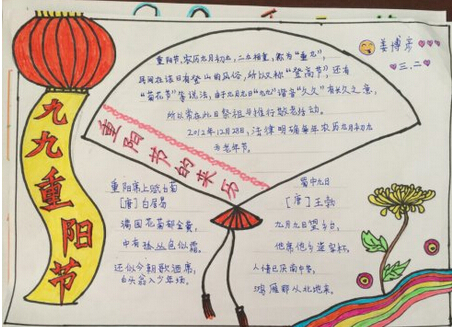 九九重阳节
重阳节的来历
重阳节,农历九月初九,二九相重,称为"重九",
民间在该日有登山的风俗,所以称"登高节"还有
"菊花节"等说法,由于九月九日"九九"谐音"久久"有长久之意,
所以常在此日祭祖与推行敬老活动。
2012年12月28日,法律明确每年农历九月初九
为老年节。
姜博彦
三.二
重阳席上赋白菊
[唐]白居易
满园花菊郁金黄,
中有孤丛色似霜。
还似今朝歌酒席,
白头翁入少年场。
蜀中九日
[唐]王勃
九月九日望乡台,
他席他乡送客杯。
人情已厌南中苦,
鸿雁那从北地来。